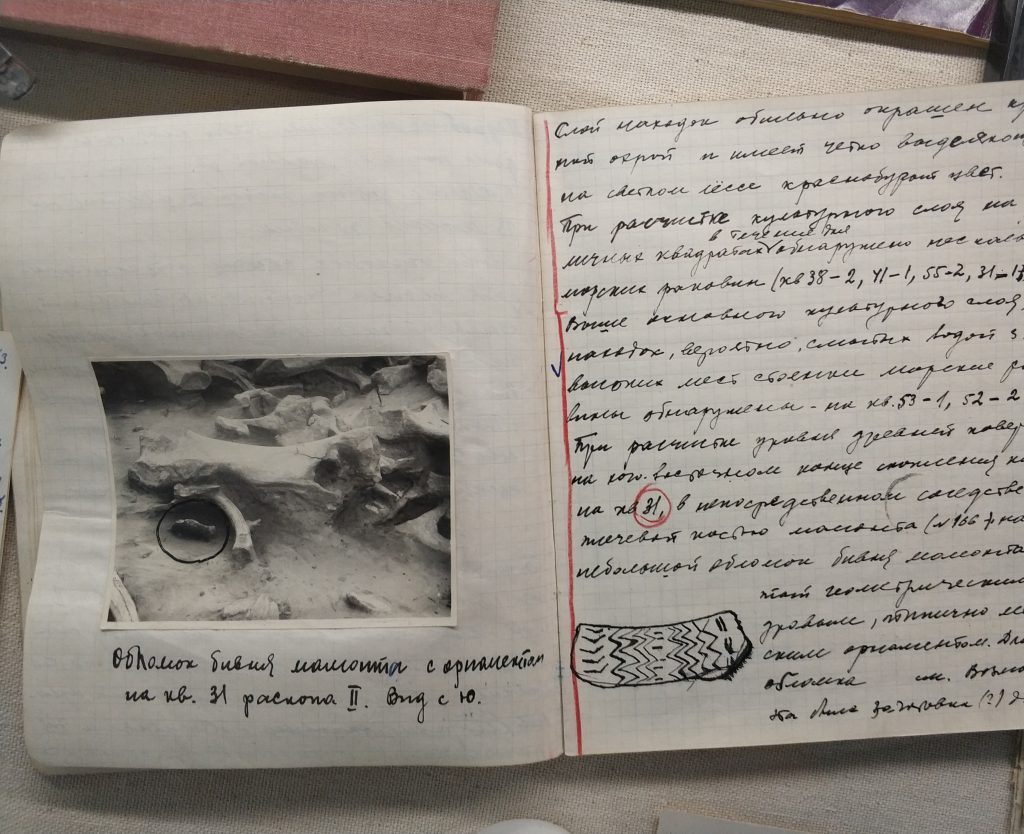 Обломок бивня мамонта с орнаментом
на кв. 31 раскопа II. Вид с Ю.
Слой находок обильно окрашен
ной охрой и имеет четко
на светлом лёссе краснобурый цвет.
При расчистке культурного слоя на
личных квадратах в течение дня обнаружено
морских раковин (кв 38-2, 41-1, 55-2, 31-1
Выше основного культурного слоя
находок, вероятно, смытых водой з
мест стоянки морские
вины обнаружены - на кв. 53-1, 52-2
При расчистке уровня древней
на юго-восточном конце скопления
на кв 31, в непосредственном
плечевой костью мамонта (№ 166)
небольшой обломок бивня мамонта
геометрическим
типично
ским орнаментом.
обломка см.
эта была заготовка (?)